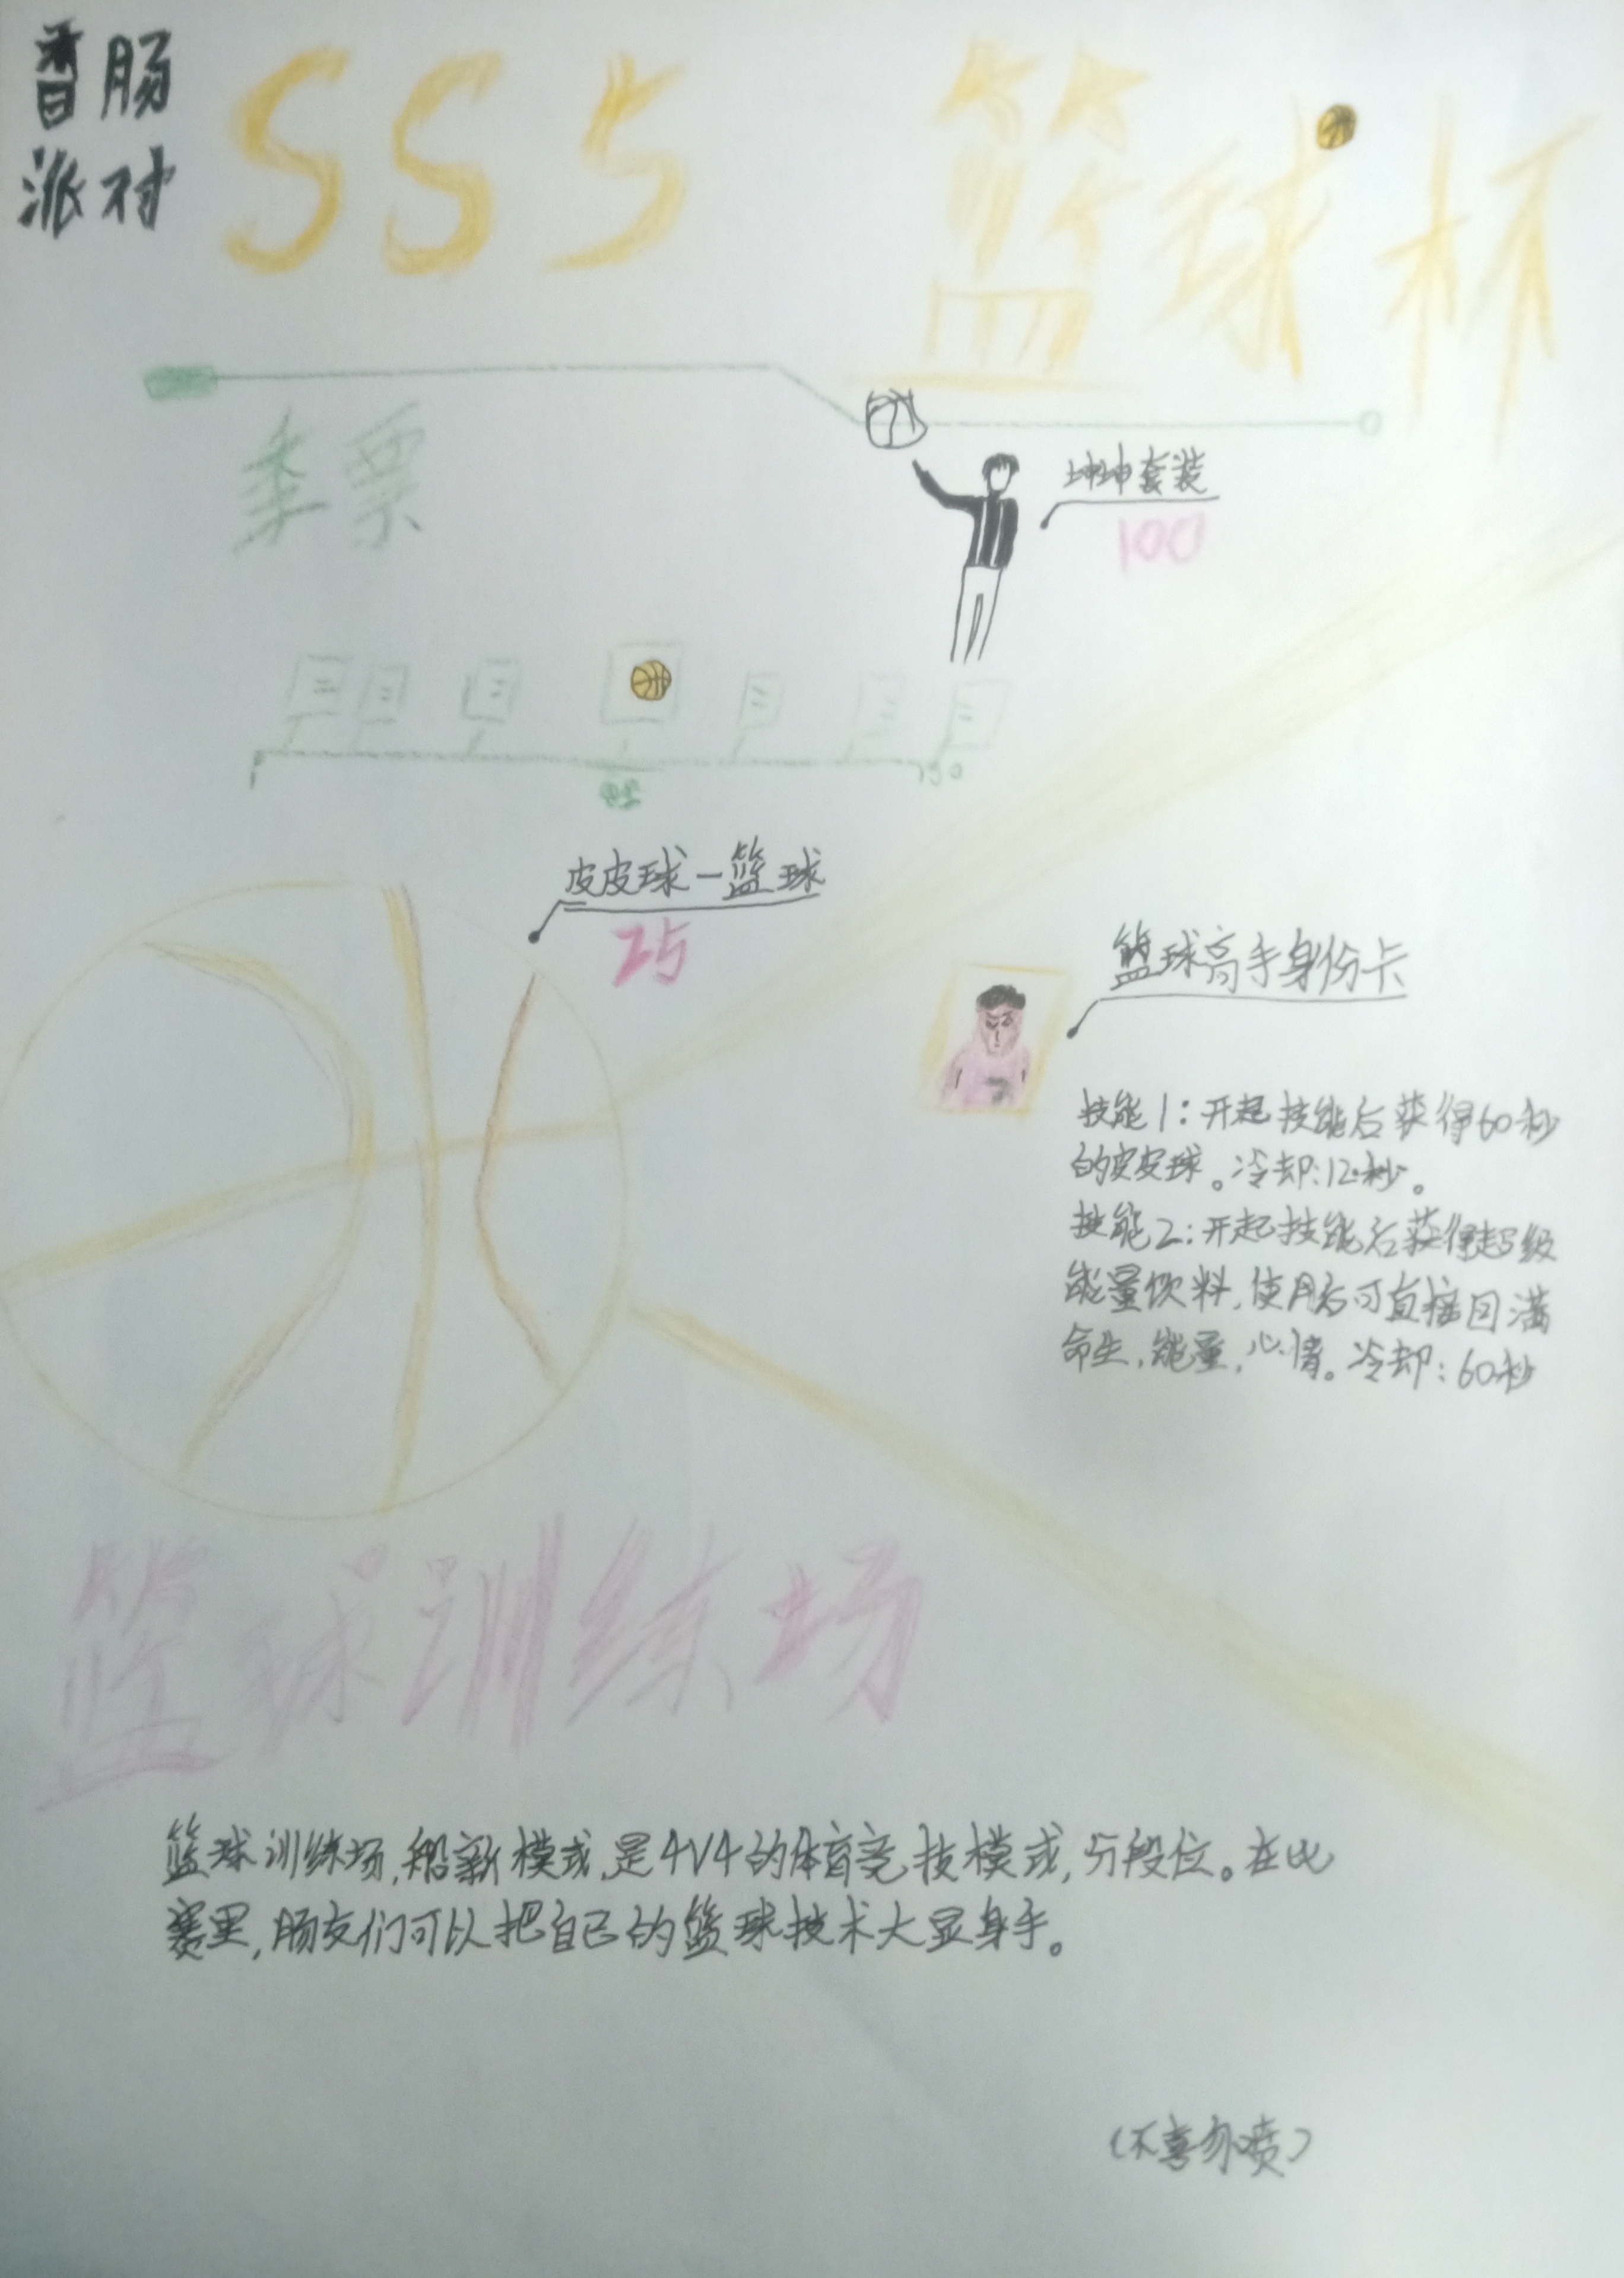 香肠
派对
SS5 篮球杯
季票
坤坤套装
100
1
150
皮皮球—篮球
25
篮球高手身份卡
技能1:开起技能后获得60秒
的皮皮球。冷却:12秒。
技能2:开起技能后获得超级
能量饮料,使用后可直接回满
命生,能量,心情。冷却:60秒
篮球训练场
篮球训练场,船新模式,是4V4的体育竞技模式,分段位。在比
赛里,肠友们可以把自己的篮球技术大显身手。
(不喜勿喷)